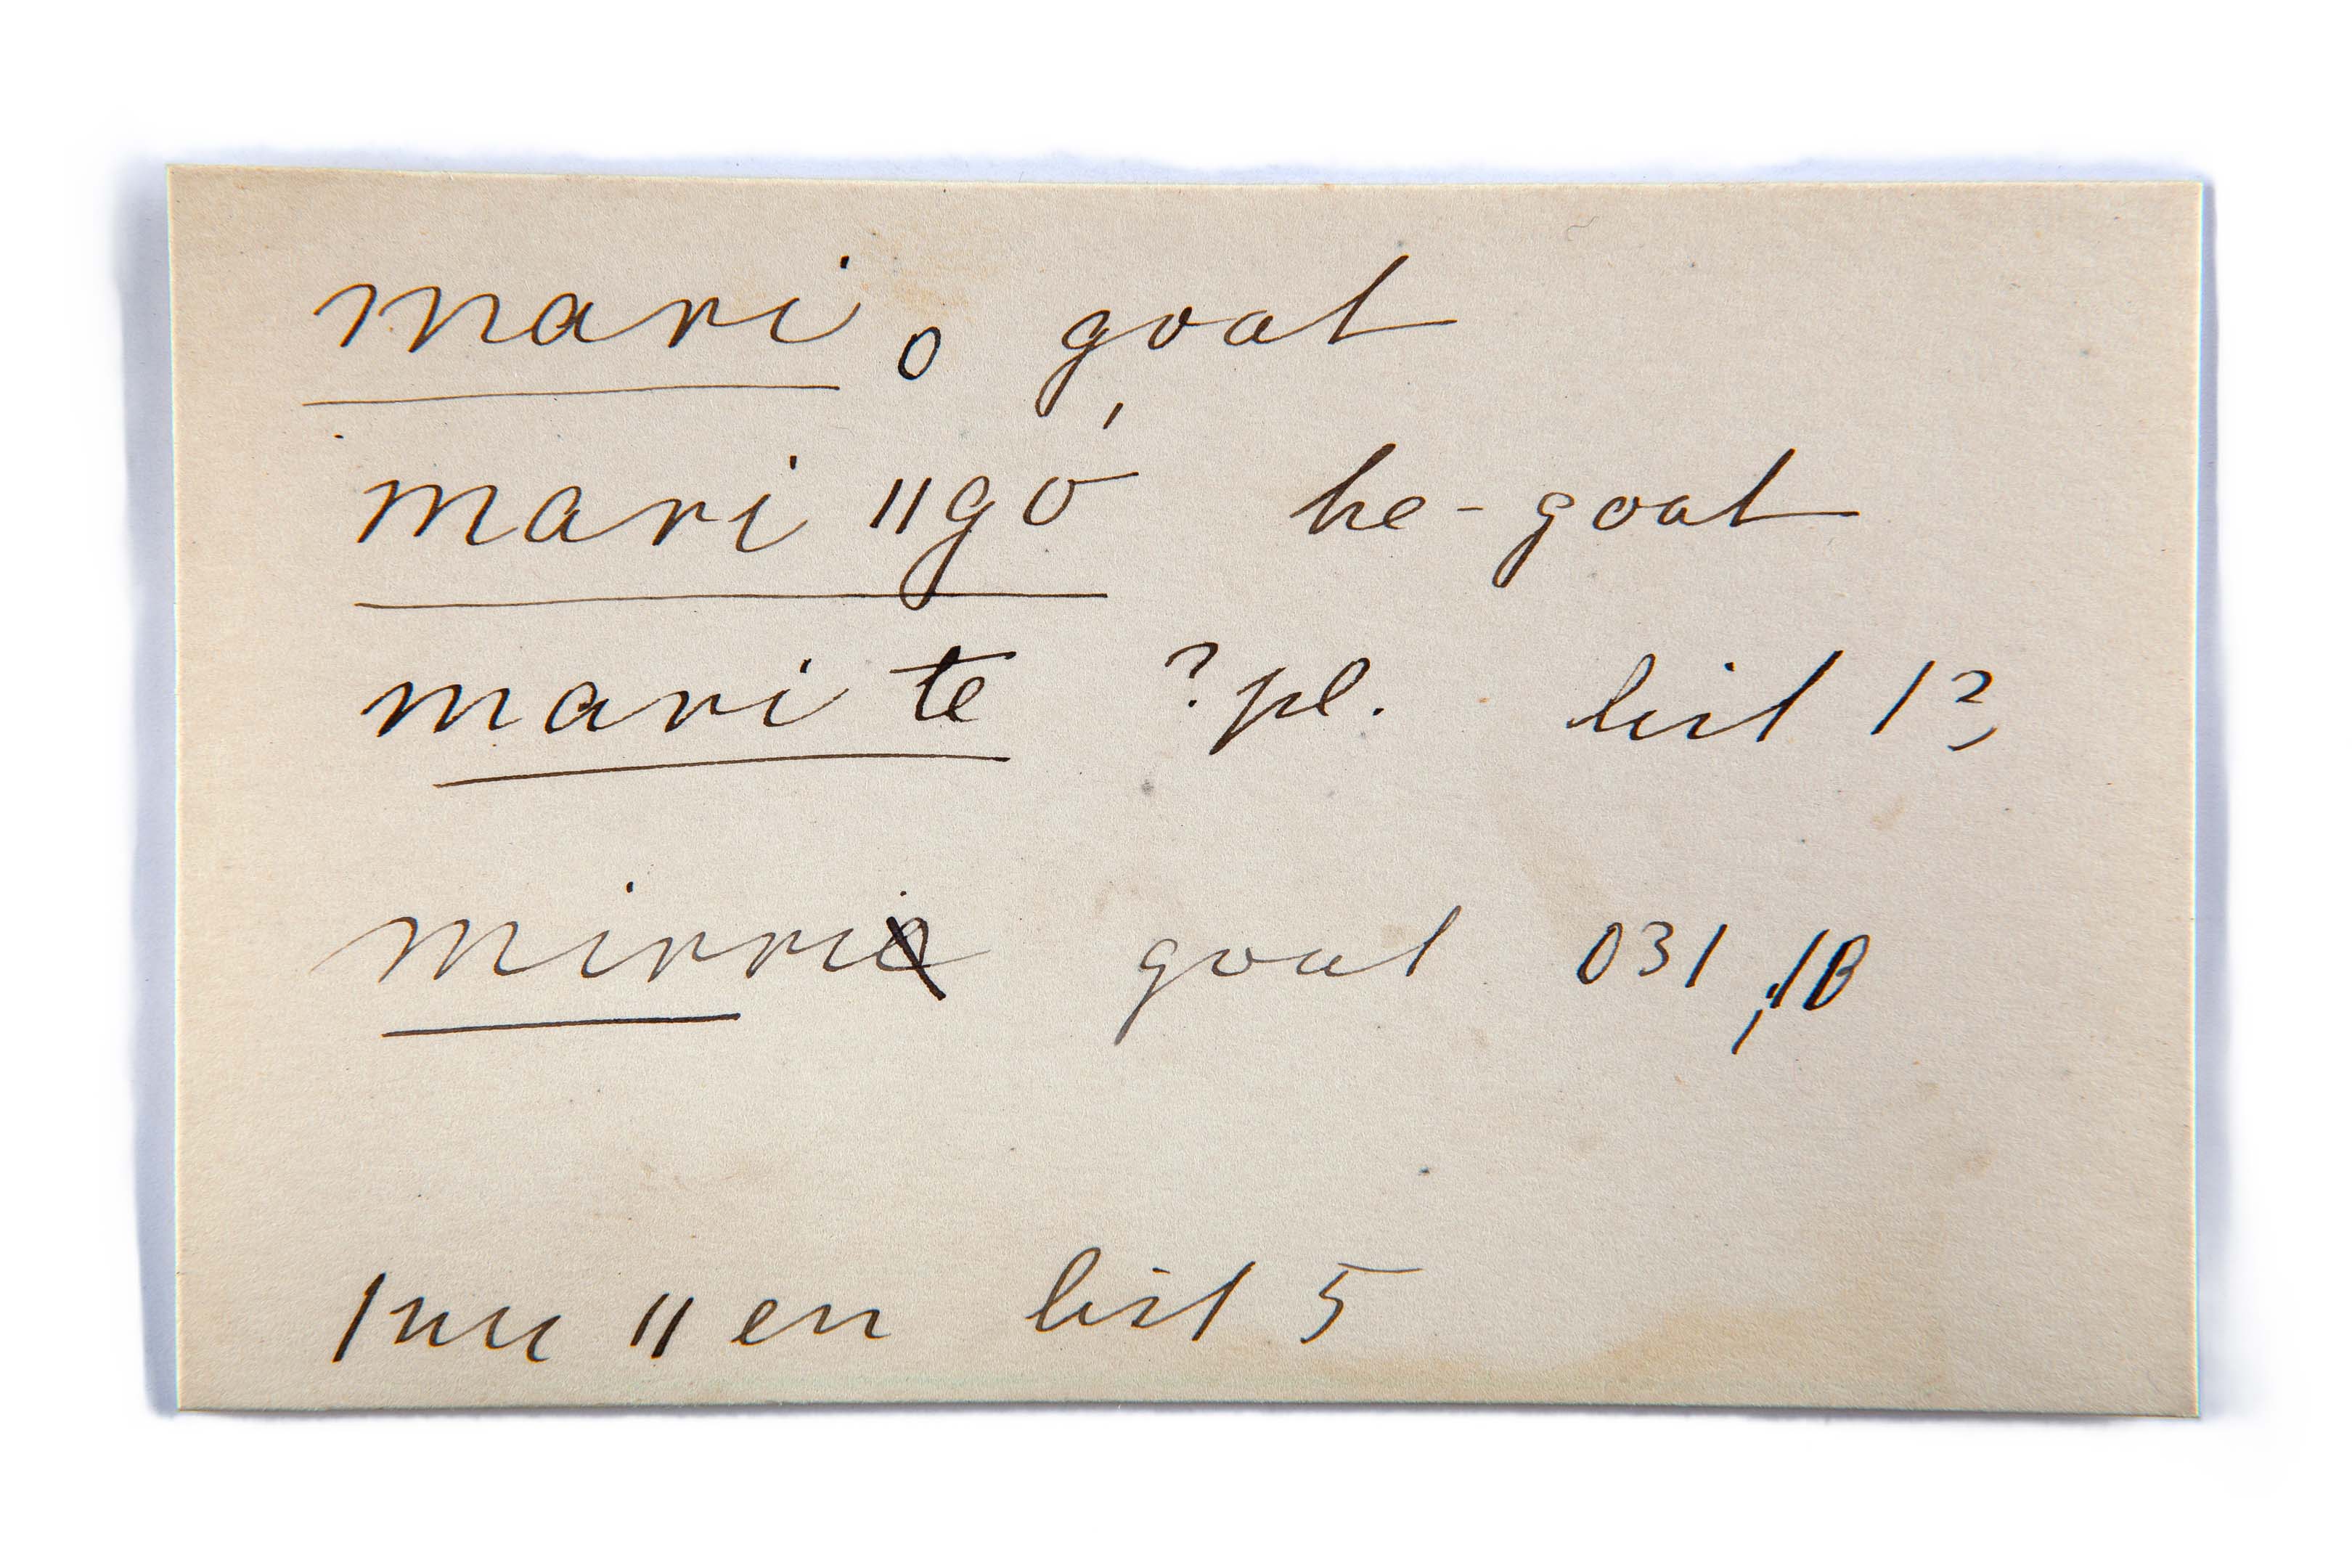 mari o goat
mari ǁgó he-goat
mari te ? pl. list 13
mirri goat 031
ǀnu ǁen list 5